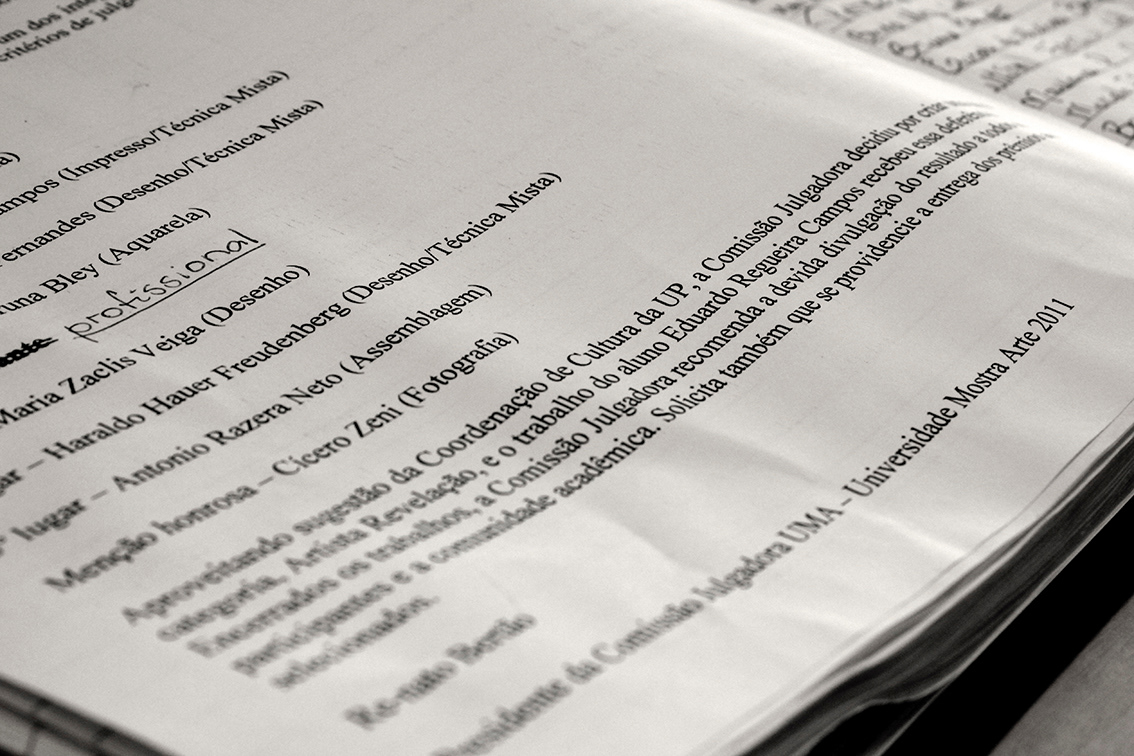 dos inte
critérios de julg
a)
ampos (Impresso/Técnica Mista)
ernandes (Desenho/Técnica Mista)
una Bley (Aquarela)
profissional
Maria Zaclis Veiga (Desenho)
gar – Haraldo Hauer Freudenberg (Desenho/Técnica Mista)
lugar – Antonio Razera Neto (Assemblagem)
Menção honrosa – Cícero Zeni (Fotografia)
Aproveitando sugestão da Coordenação de Cultura da UP , a Comissão Julgadora decidiu por criar
categoria, Artista Revelação, e o trabalho do aluno Eduardo Regueira Campos recebeu essa
Encerrados os trabalhos, a Comissão Julgadora recomenda a devida divulgação do resultado a
participantes e a comunidade acadêmica. Solicita também que se providencie a entrega dos prêmios
selecionados.
Re-nato Bertão
Presidente da Comissão Julgadora UMA – Universidade Mostra Arte 2011